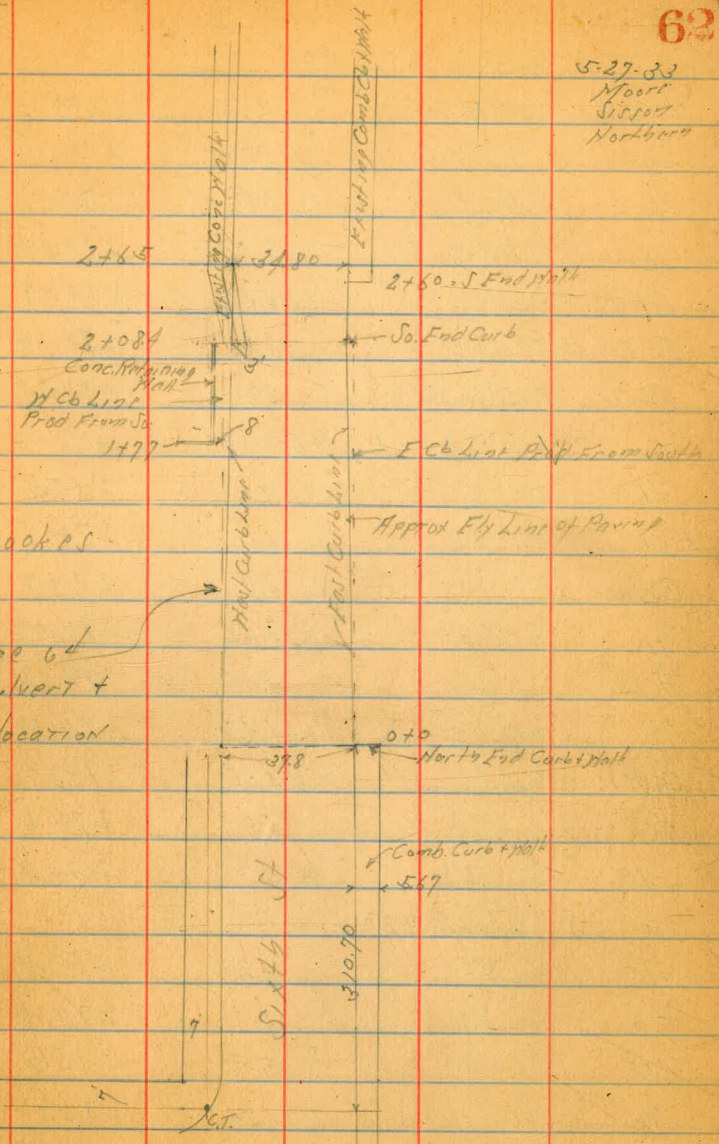 62
5-27-33
Moore
Sisson
Northern
Existing Conc Walk
Existing Comb Cb & Walk
2+65
34.80
2+60 = S End Walk
2+08.4
So. End Curb
Conc. Retaining
Wall
W Cb Line
Prod From So.
1+77
.8
E Cb Line Prod From South
West Curb Line
East Curb Line
Approx Ely Line of Paving
ookes
ee 64
lvert +
ocation
0+0
37.8
North End Curb & Walk
Comb. Curb & Walk
5.67
Sixth St
310.70
7
7
C.T.